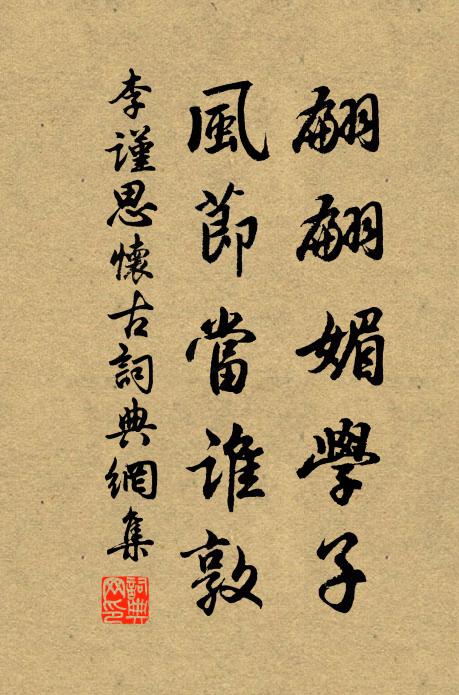 翩翩媚學子
風節當誰敦
李謹思懷古詞典網集
詞典網印